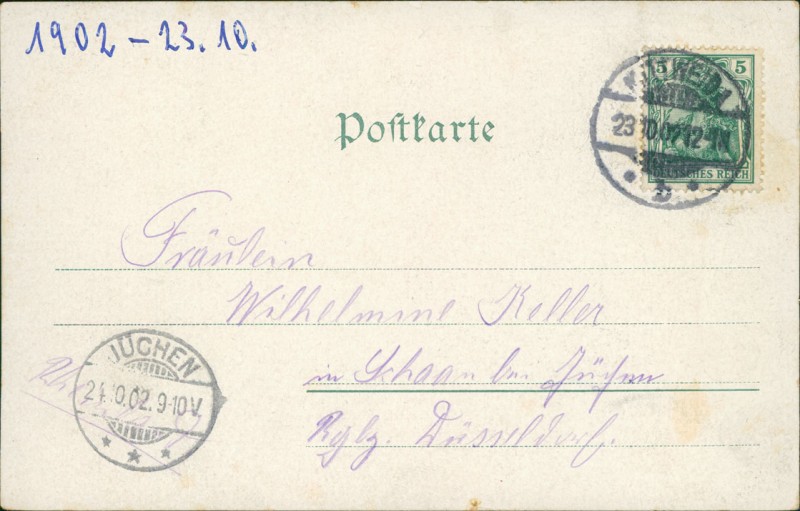 1902 - 23. 10.
5 5
23 10.02 12-1N
b
DEUTSCHES REICH
Postkarte
Fräulein
Wilhelmine Keller
in Schaan bei Jüchen
Rgbz. Düsseldorf.
JÜCHEN
24.10.02.9-10V.